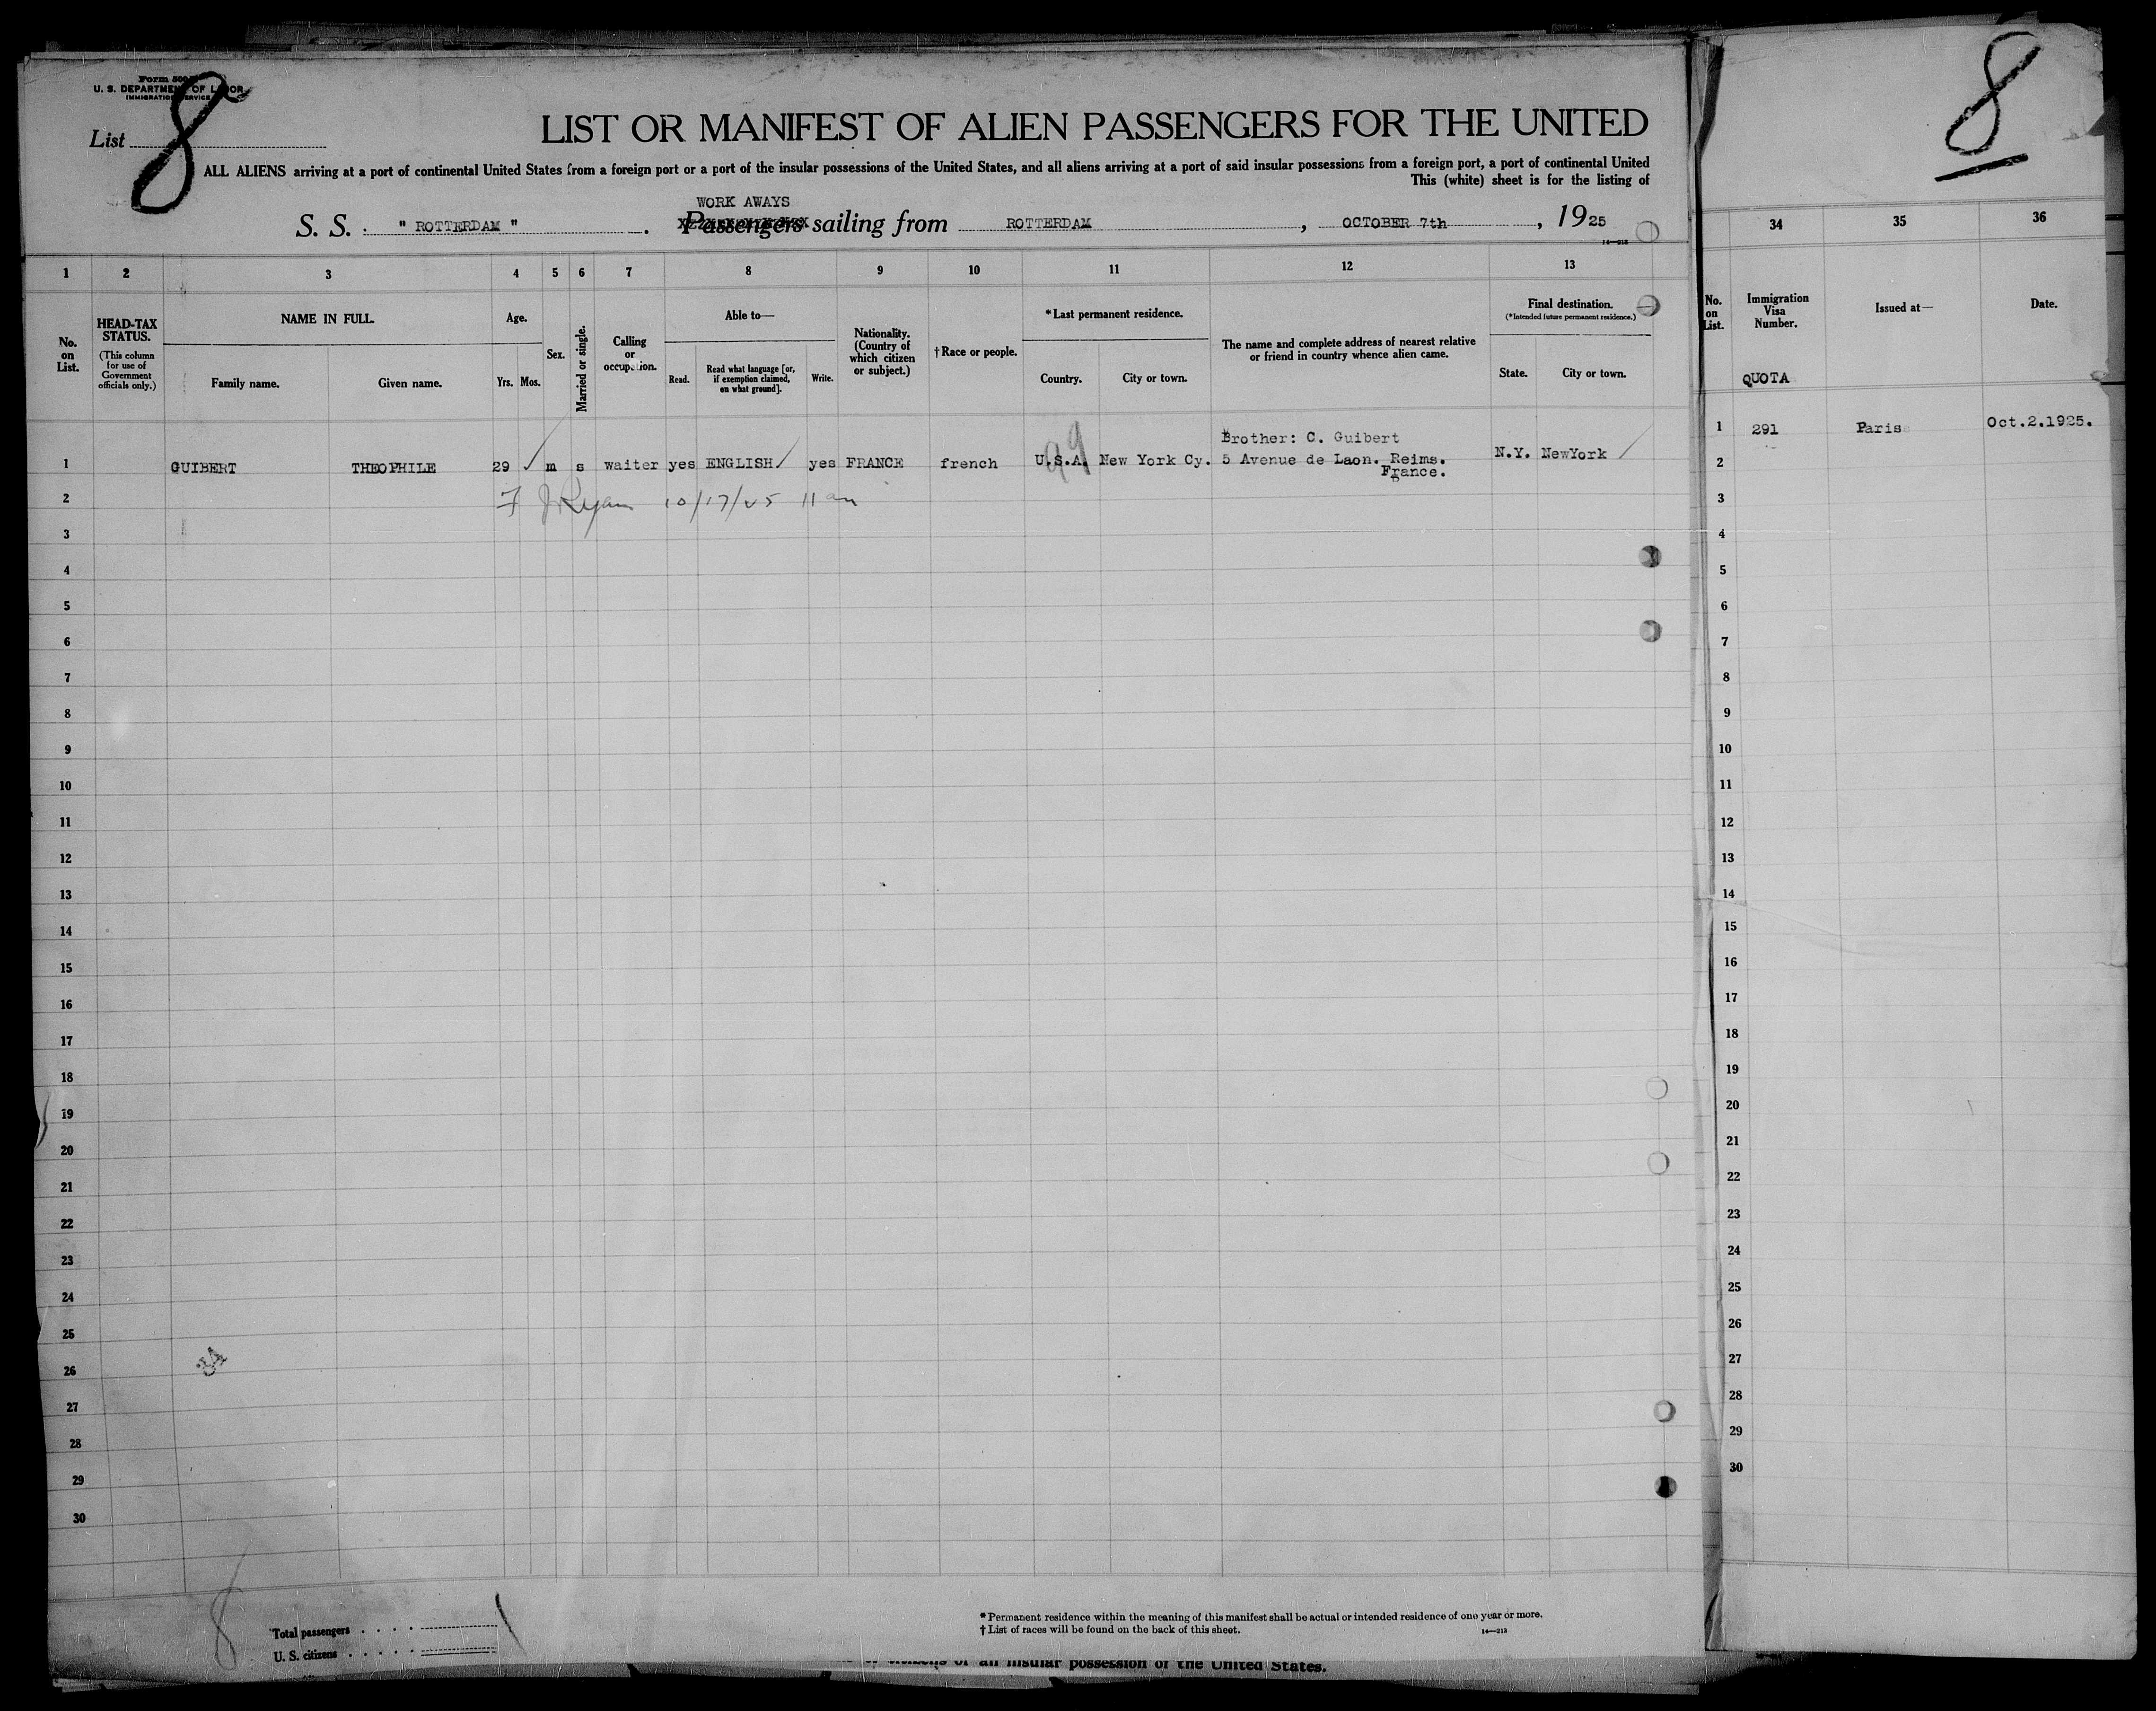 Form 500
U. S. DEPARTMENT OF LABOR
IMMIGRATION SERVICE
List 8
LIST OR MANIFEST OF ALIEN PASSENGERS FOR THE UNITED
ALL ALIENS arriving at a port of continental United States from a foreign port or a port of the insular possessions of the United States, and all aliens arriving at a port of said insular possessions from a foreign port, a port of continental United
This (white) sheet is for the listing of
WORK AWAYS
S. S. " ROTTERDAM " Passengers sailing from ROTTERDAM , OCTOBER 7th , 1925
14—213
1 2 3 4 5 6 7 8 9 10 11 12 13
No. on List.
HEAD-TAX STATUS.
(This column for use of Government officials only.)
NAME IN FULL.
Family name. Given name.
Age.
Yrs. Mos.
Sex.
Married or single.
Calling or occupation.
Able to—
Read. Read what language [or, if exemption claimed, on what ground]. Write.
Nationality. (Country of which citizen or subject.)
†Race or people.
*Last permanent residence.
Country. City or town.
The name and complete address of nearest relative or friend in country whence alien came.
Final destination.
(*Intended future permanent residence.)
State. City or town.
Brother: C. Guibert
1 GUIBERT THEOPHILE 29 m s waiter yes ENGLISH yes FRANCE french U.S.A. New York Cy. 5 Avenue de Laon. Reims. N.Y. NewYork
France.
99
2 F J Ryan 10/17/25 11 am
3
4
5
6
7
8
9
10
11
12
13
14
15
16
17
18
19
20
21
22
23
24
25
26
27
28
29
30
8
Total passengers
U. S. citizens
* Permanent residence within the meaning of this manifest shall be actual or intended residence of one year or more.
† List of races will be found on the back of this sheet.
14—213
of citizens of an insular possession of the United States.
8
34 35 36
No. on List.
Immigration Visa Number.
Issued at—
Date.
QUOTA
1 291 Paris Oct.2.1925.
2
3
4
5
6
7
8
9
10
11
12
13
14
15
16
17
18
19
20
21
22
23
24
25
26
27
28
29
30